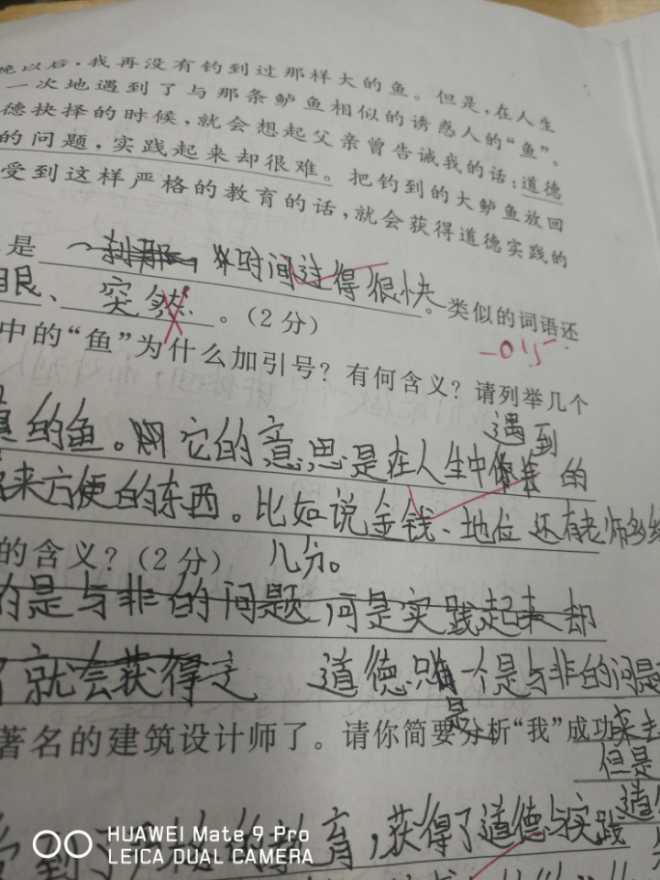 以后，我再没有钓到过那样大的鱼。但是，在人生
一次地遇到了与那条鲈鱼相似的诱惑人的“鱼”。
德抉择的时候，就会想起父亲曾告诫我的话：道德
的问题，实践起来却很难。把钓到的大鲈鱼放回
受到这样严格的教育的话，就会获得道德实践的
是 一刹那，时间过得很快。类似的词语还
眼、突然。（2分）
-0.5
中的“鱼”为什么加引号？有何含义？请列举几个
遇到
真的鱼。它的意思是在人生中 的
来方便的东西。比如说金钱、地位还有老师多给
的含义？（2分） 几分。
的是与非的问题，可是实践起来却
就会获得 道德只有一个是与非的问题
是
著名的建筑设计师了。请你简要分析“我”成功 来
但是
受到了严格的教育，获得了道德与实践
HUAWEI Mate 9 Pro
LEICA DUAL CAMERA